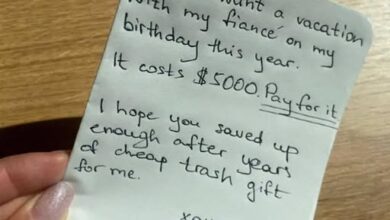 want a vacation
with my fiancé on my
birthday this year.
It costs $5000. Pay for it
I hope you saved up
enough after years
of cheap trash gift
for me.